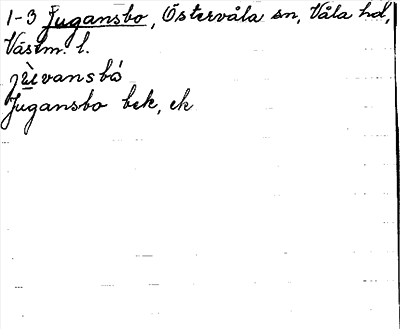 1-3 Jugansbo, Östervåla sn, Våla hd,
Västm. l.
Jugansbo bek, ek